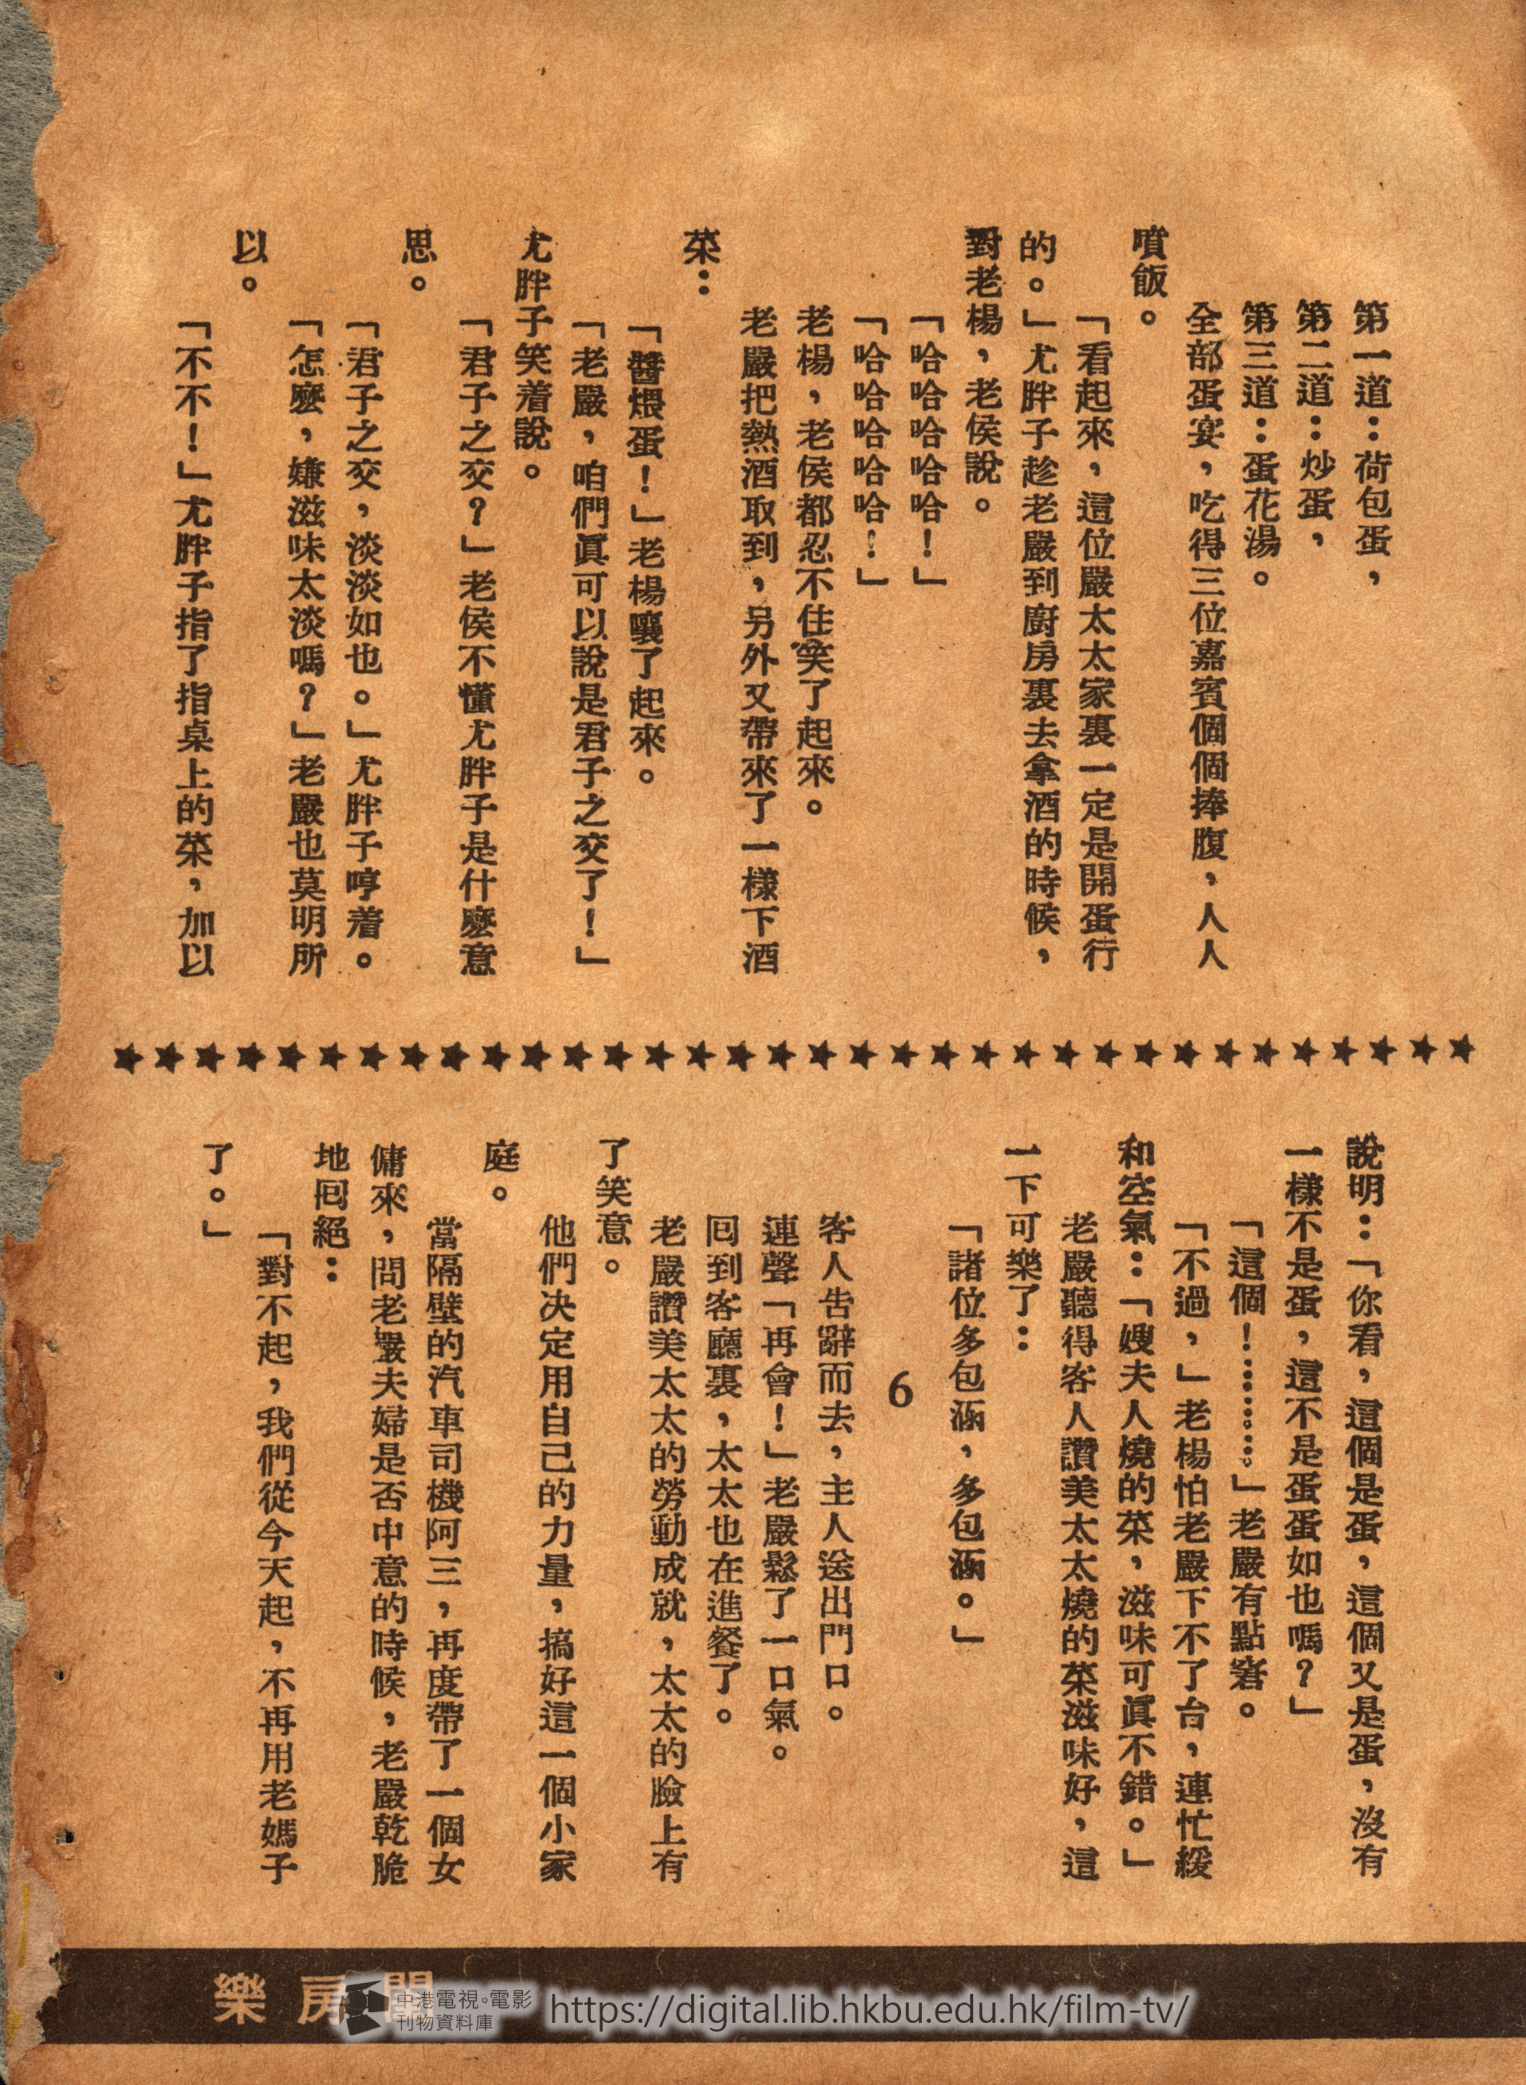 第一道：荷包蛋，
第二道：炒蛋，
第三道：蛋花湯。
全部蛋宴，吃得三位嘉賓個個捧腹，人人
噴飯。
「看起來，這位嚴太太家裏一定是開蛋行
的。」尤胖子趁老嚴到廚房裏去拿酒的時候，
對老楊，老侯說。
「哈哈哈哈哈！」
「哈哈哈哈哈！」
老楊，老侯都忍不住笑了起來。
老嚴把熱酒取到，另外又帶來了一樣下酒
菜：
「醬煨蛋！」老楊嚷了起來。
「老嚴，咱們眞可以說是君子之交了！」
尤胖子笑着說。
「君子之交？」老侯不懂尤胖子是什麽意
思。
「君子之交，淡淡如也。」尤胖子哼着。
「怎麽，嫌滋味太淡嗎？」老嚴也莫明所
以。
「不不！」尤胖子指了指桌上的菜，加以
說明：「你看，這個是蛋，這個又是蛋，沒有
一樣不是蛋，這不是蛋蛋如也嗎？」
「這個！………」老嚴有點窘。
「不過，」老楊怕老嚴下不了台，連忙緩
和空氣：「嫂夫人燒的菜，滋味可眞不錯。」
老嚴聽得客人讚美太太燒的菜滋味好，這
一下可樂了：
「諸位多包涵，多包涵。」
6
客人告辭而去，主人送出門口。
連聲「再會！」老嚴鬆了一口氣。
回到客廳裏，太太也在進餐了。
老嚴讚美太太的勞動成就，太太的臉上有
了笑意。
他們决定用自己的力量，搞好這一個小家
庭。
當隔壁的汽車司機阿三，再度帶了一個女
傭來，問老嚴夫婦是否中意的時候，老嚴乾脆
地回絕：
「對不起，我們從今天起，不再用老媽子
了。」
樂房開
中港電視·電影
刊物資料庫
https://digital.lib.hkbu.edu.hk/film-tv/